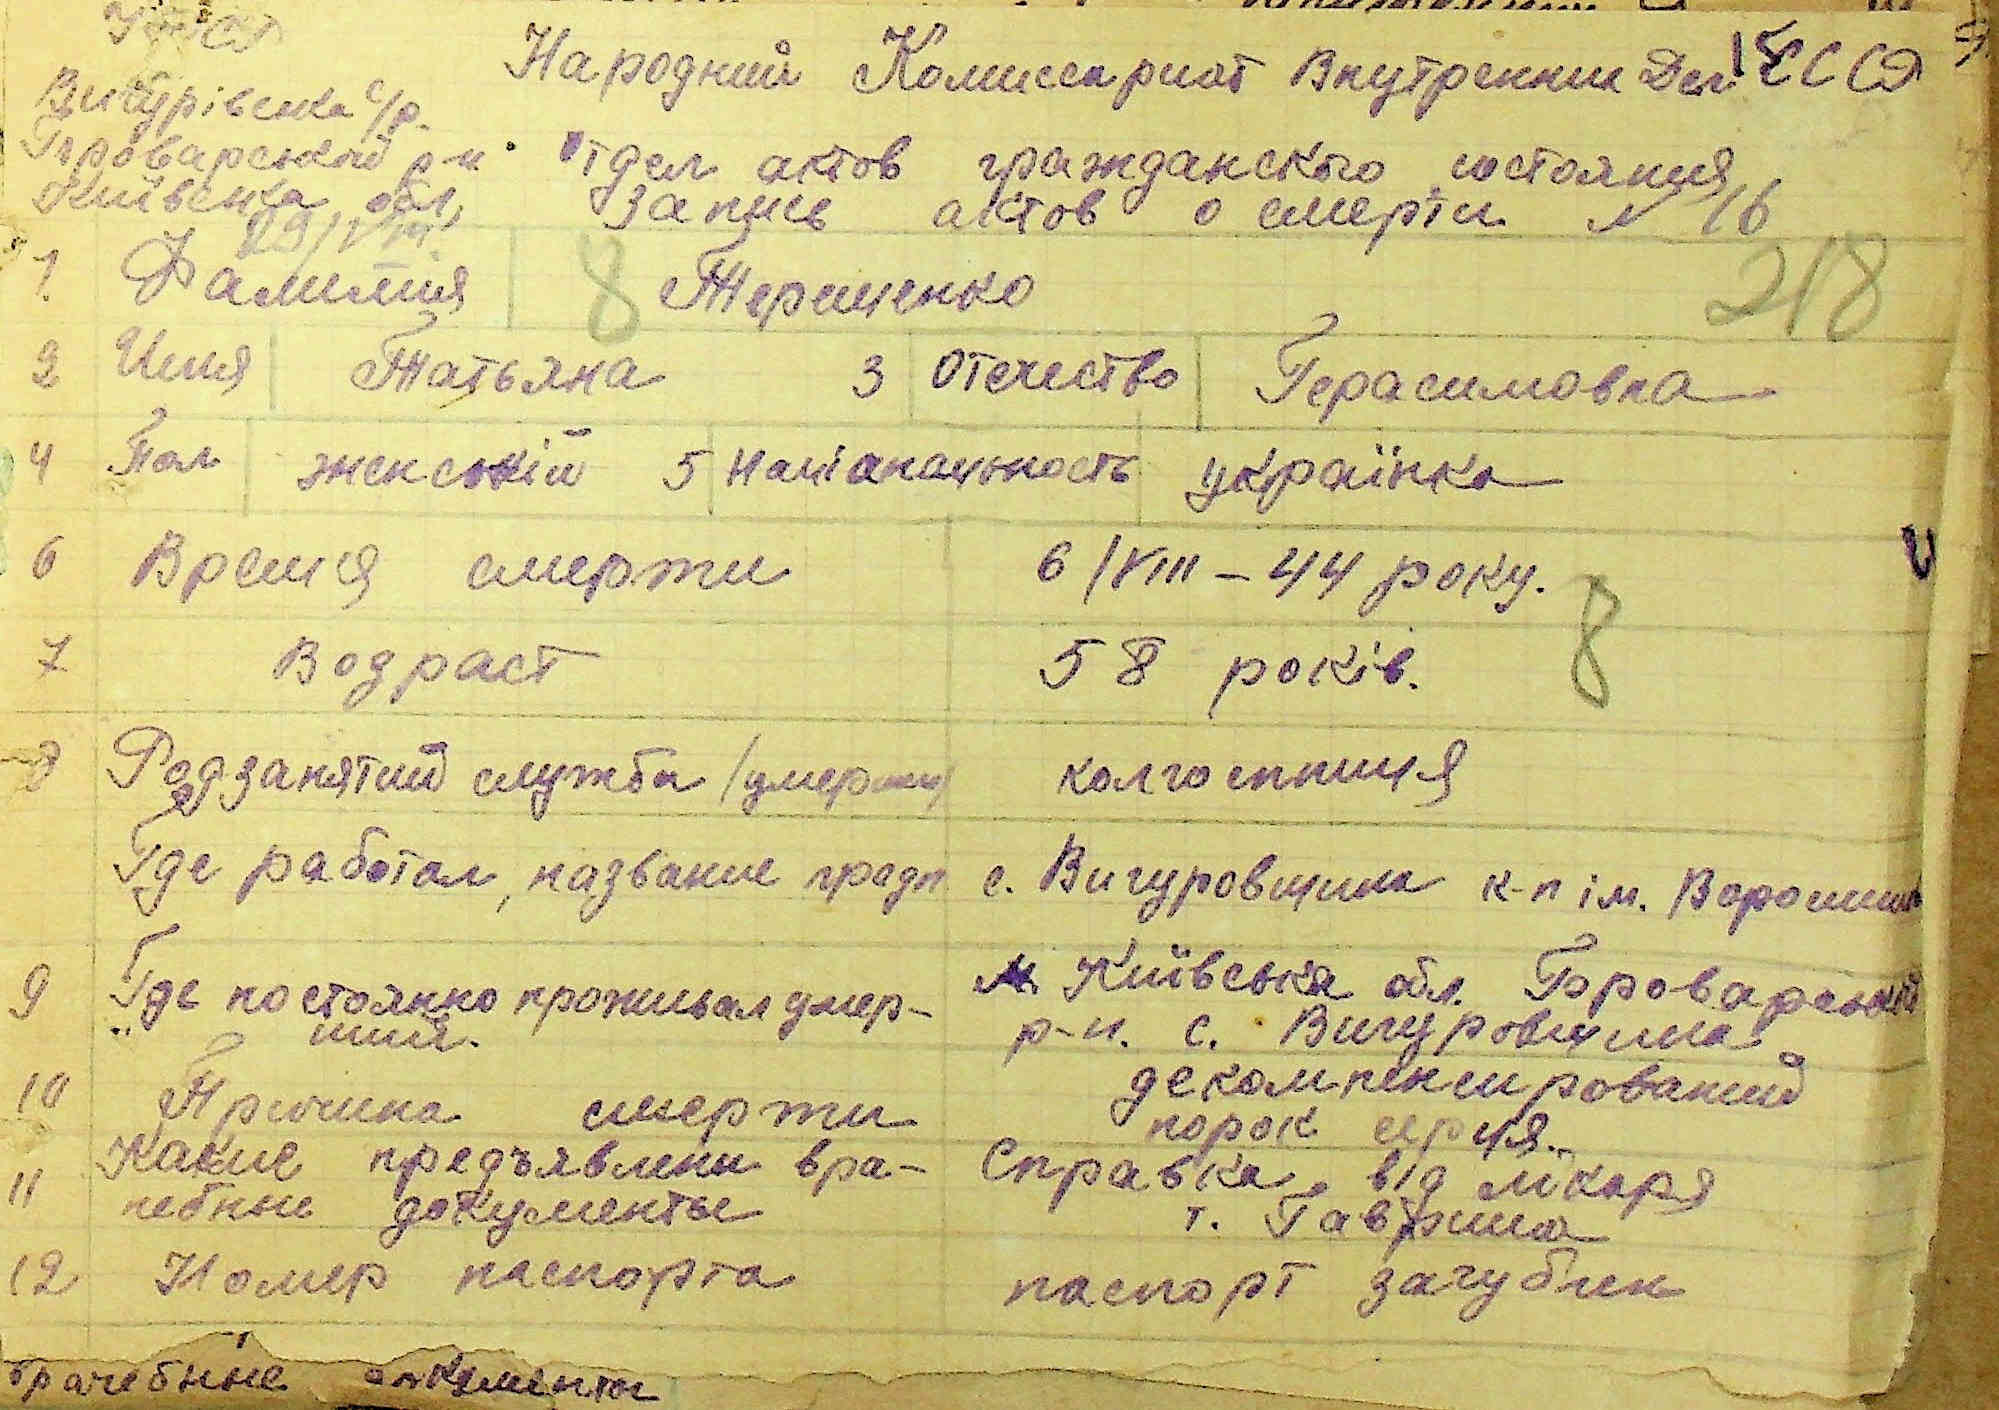 УССР
Вигурівська с/р.
Броварський р-н.
Київська обл,
29/VIII
Народний Комиссариат Внутренних Дел СССР
Отдел актов гражданского состояния
Запись актов о смерти № 16
218
1. Фамилия 8 Терещенко
2 Имя Татьяна 3 Отечество Герасимовна
4 Пол женскій 5 Націанальность українка
6 Время смерти 6/VIII - 44 року.
7 Водраст 58 років. 8
8 Родзанятий служба /умерши/ колгоспниця
Где работал, название предп с. Вигуровщина к-п ім. Ворошил
9 Где постоянно проживал умер- м. Київська обл. Броварський
ший. р-н. с. Вигуровщина
10 Причина смерти декомпенсированый
порок серця.
11 Какие предъявлены вра- Справка від лікаря
чебные документы т. Гавриша
12 Номер паспорта паспорт загублен
врачебные документы